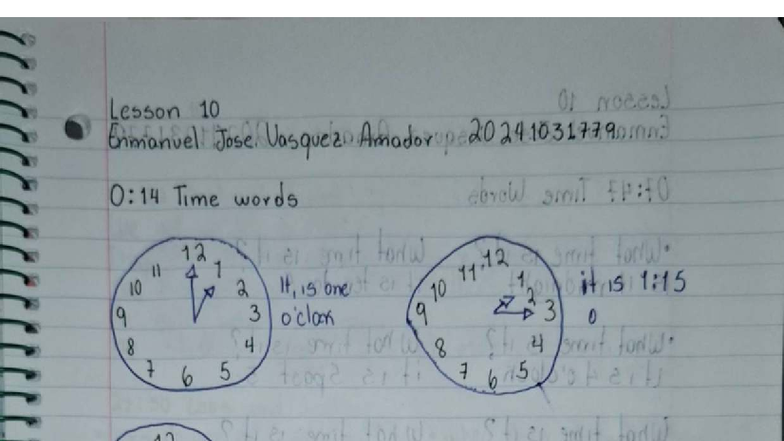 Lesson 10
Enmanuel Jose Vasquez Amador 20241031779
0:14 Time words
12
11 1
10 2
9 3
8 4
7 6 5
It, is one
o'clock
12
11 1
10 2
9 3
8 4
7 6 5
it is 1:15
0
12